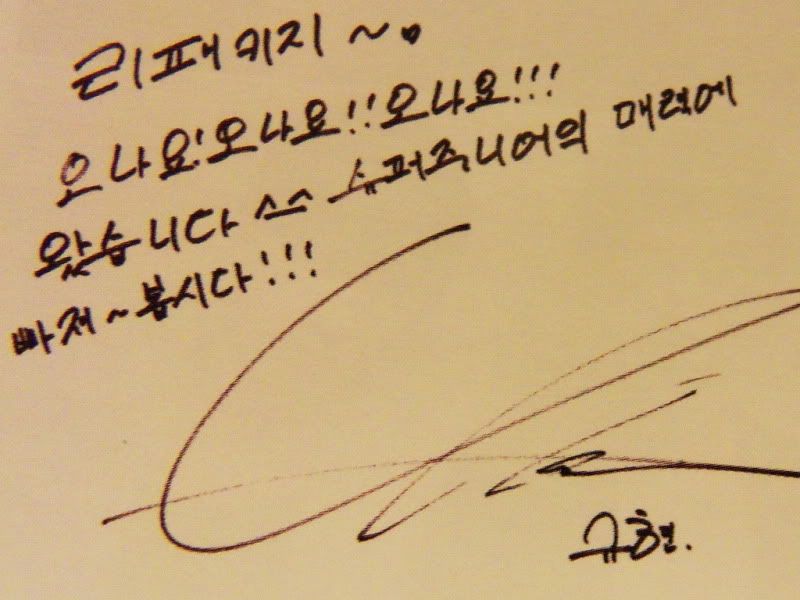 리패키지 ~.
오나요!오나요!!오나요!!!
왔습니다 ^^ 슈퍼주니어의 매력에
빠져~봅시다!!!
규현.